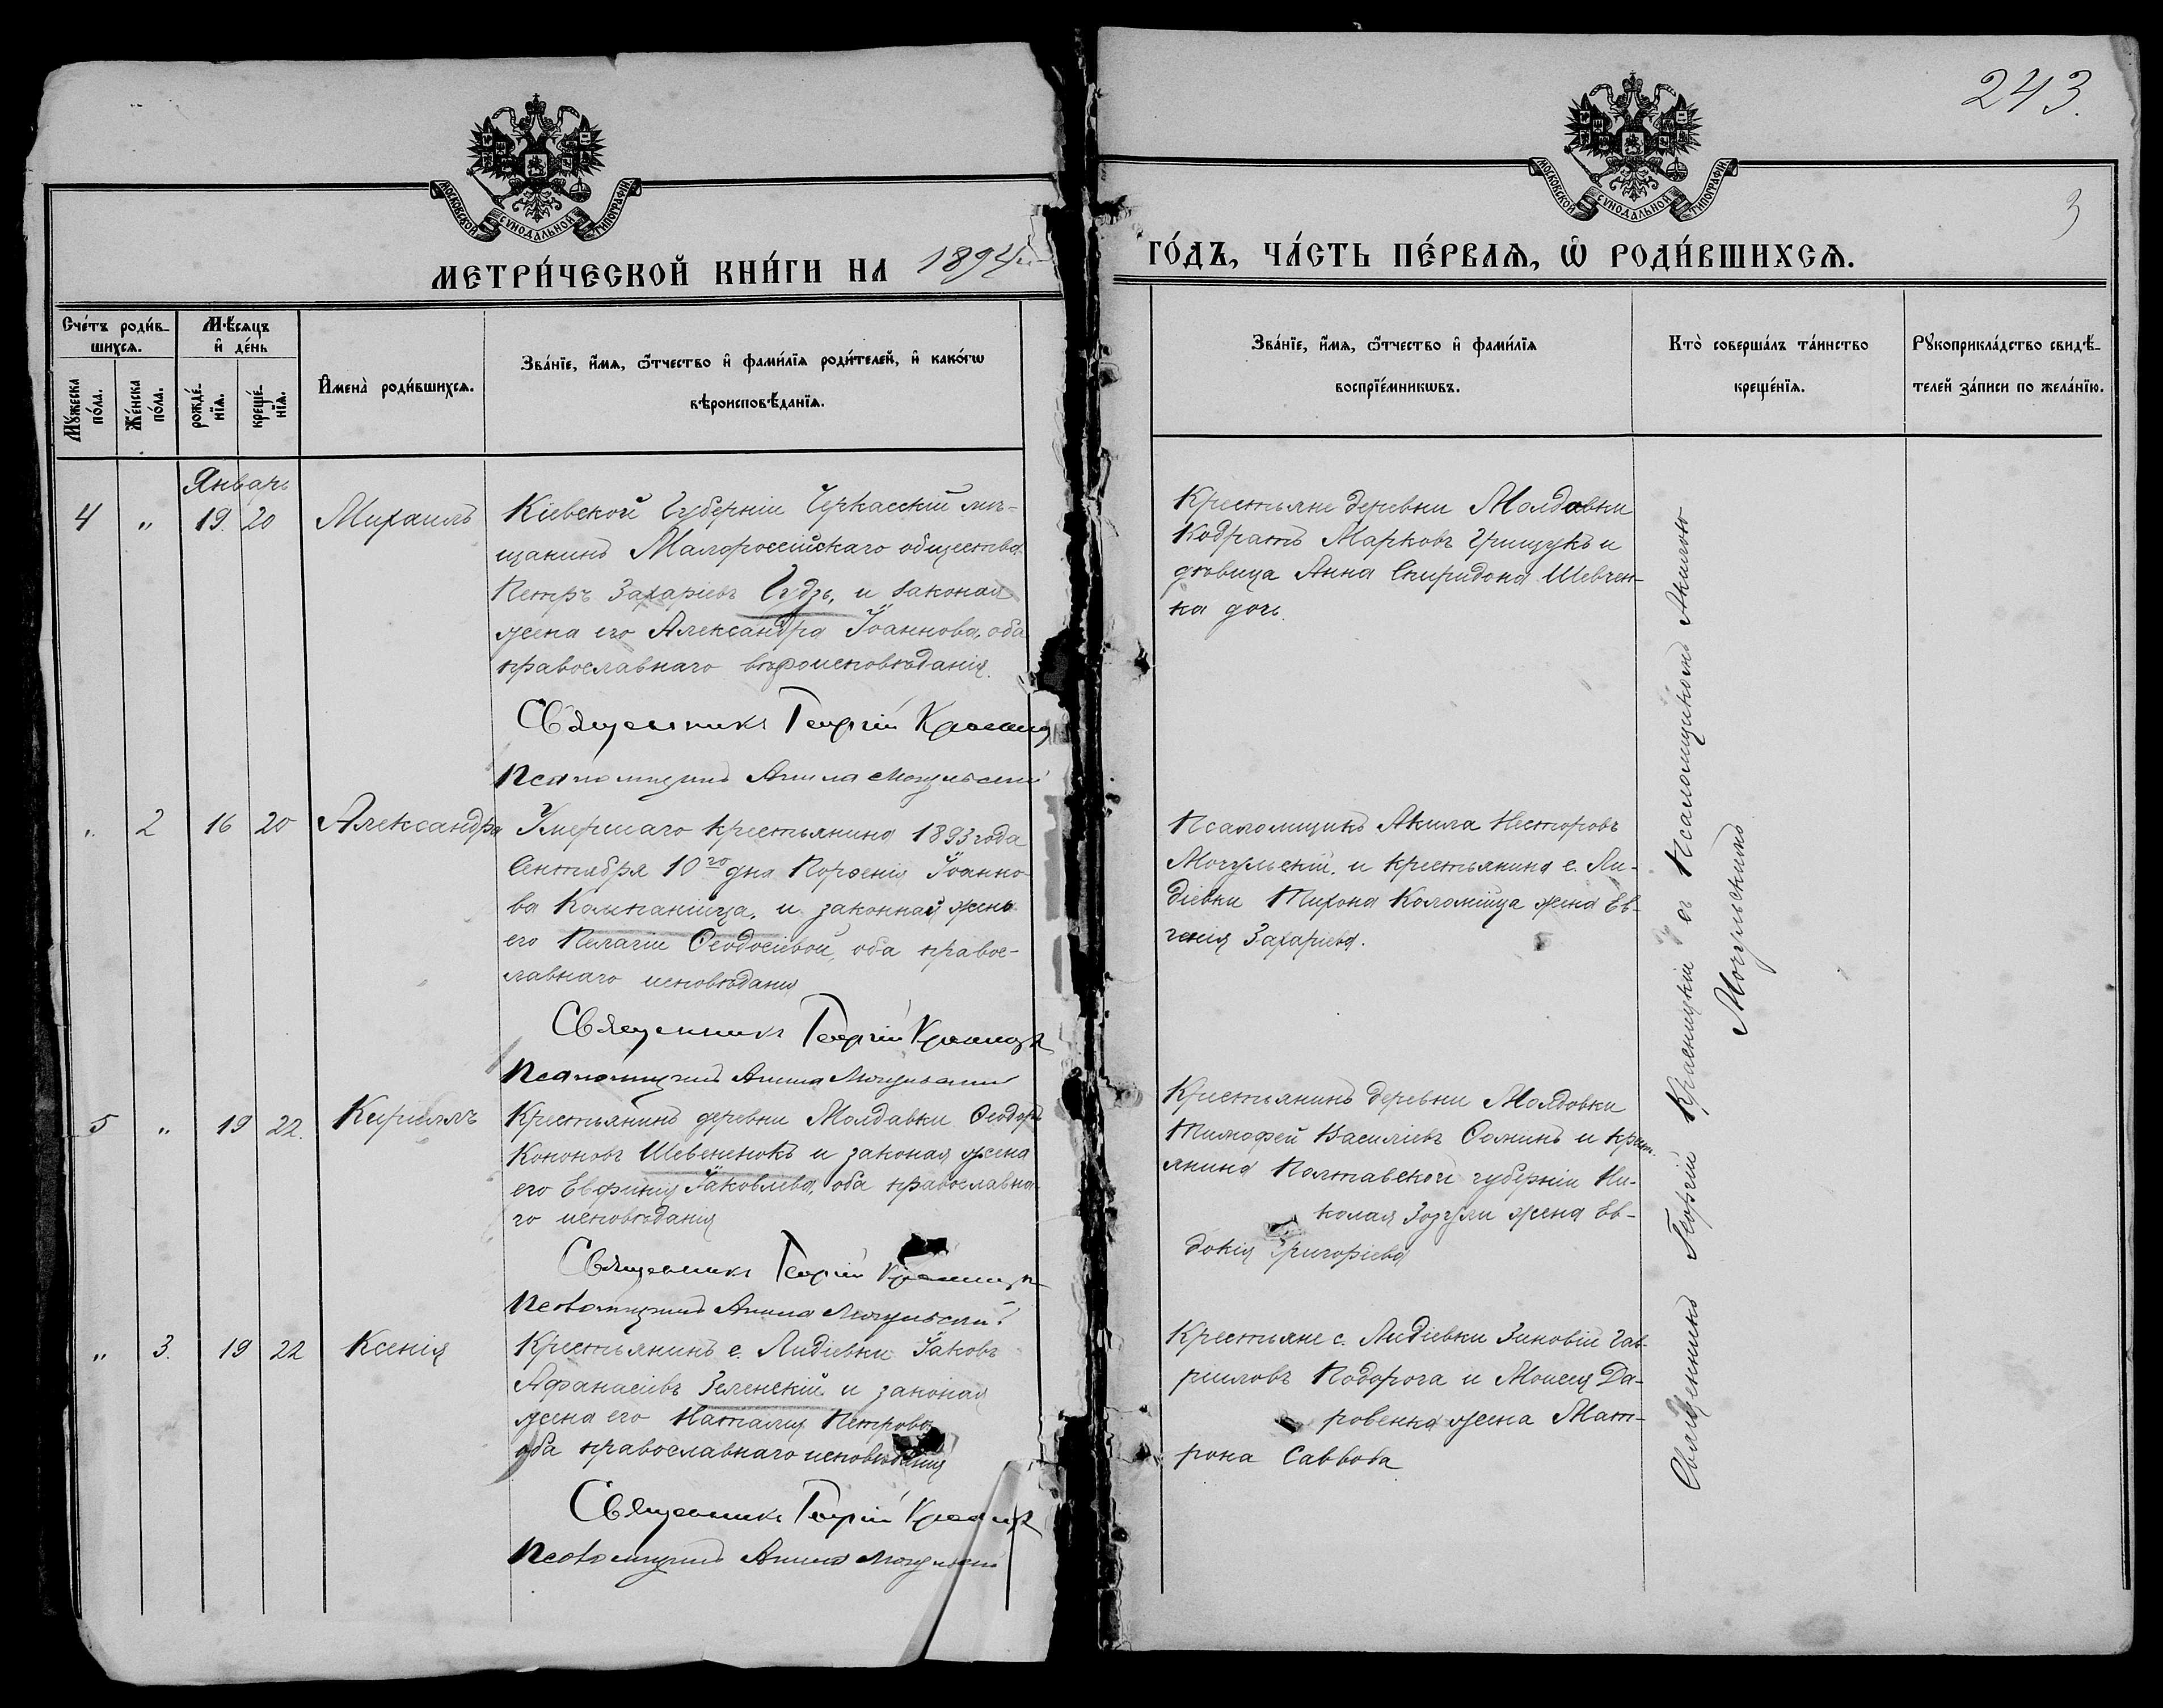 243.
3
МОСКОВСКОЙ СѴНОДАЛЬНОЙ ТИПОГРАФІИ
МОСКОВСКОЙ СѴНОДАЛЬНОЙ ТИПОГРАФІИ
МЕТРИ́ЧЕСКОЙ КНИ́ГИ НА 1894
ГО́ДЪ, ЧА́СТЬ ПЕ́РВАѦ, Ѡ҆ РОДИ́ВШИХСѦ.
Сче́тъ роди́в-
шихсѧ.
Мꙋ́жеска
по́ла.
Же́нска
по́ла.
М́ѣсѧцъ
и҆ де́нь
рожде́-
нїѧ.
креще́-
нїѧ.
И҆мена̀ роди́вшихсѧ.
Зва́нїе, и҆́мѧ, ѻ҆́тчество и҆ фами́лїѧ роди́телей, и҆ како́гѡ
вѣроисповѣ́данїѧ.
Зва́нїе, и҆́мѧ, ѻ҆́тчество и҆ фами́лїѧ
воспрїе́мникѡвъ.
Кто̀ соверша́лъ та́инство
креще́нїѧ.
Рꙋкоприкла́дство свидѣ́-
телей за́писи по жела́нїю.
Январь
4 " 19. 20 Михаилъ
Кіевской Губерніи Черкасскій мѣ-
щанинъ Малороссійскаго общества
Петръ Захаріевъ Гудзь, и законая
жена его Александра Іоаннова, оба
православнаго вѣроисповѣданія.
Священникъ Георгій Красниц
Псаломщикъ Акила Могульскій
Крестьяне деревни Молдавки
Кодратъ Марковъ Грищукъ и
дѣвица Анна Спиридона Шевчен-
ка дочь.
" 2 16 20 Александра
Умершаго крестьянина 1893 года
Сентября 10го дня Порфенія Іоанно-
ва Компанійца, и законная жена
его Пелагіи Ѳеодосіевой, оба право-
славнаго исповѣданія
Священникъ Георгій Красницк
Псаломщикъ Акила Могульскій
Псаломщикъ Акила Несторовъ
Могульскій. и крестьянина с. Ли-
діевки Тихона Коломійца жена Ев-
генія Захаріева.
5 " 19 22. Кириллъ
Крестьянинъ деревни Молдавки Ѳеодоръ
Кононовъ Шевененокъ и законая жена
его Евфимія Іаковлева, оба православна-
го исповѣданія
Священникъ Георгій Красницк
Псаломщикъ Акила Могульскій.
Крестьянинъ деревни Молдовки
Тимофей Василіевъ и крест-
янина Полтавской губерніи Ни-
колая Зозули жена Ев-
докія Григоріева
" 3. 19 22 Ксенія
Крестьянинъ с. Лидіевки Іаковъ
Афанасіевъ Зеленскій и законая
жена его Наталія Петрова
оба православнаго исповѣданія
Священникъ Георгій Красницк
Псаломщикъ Акила Могульскій
Крестьяне с. Лидіевки Зиновій Гав-
риловъ Подорога и Моисея Да-
ровенка жена Мат-
рона Саввова
Священникъ Георгій Красницкій съ Псаломщикомъ Акилою
Могульскимъ